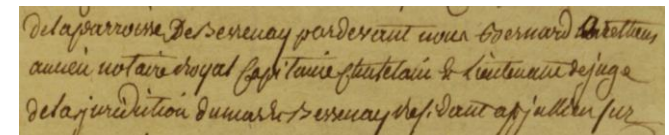 delaparroisse De Bessenay pardevant nous Bernard
ancien notaire Royal Capitaine Chatelain & Lieutenant dejuge
delajuridition dumas & Bessenay Residant a sj jullien sur